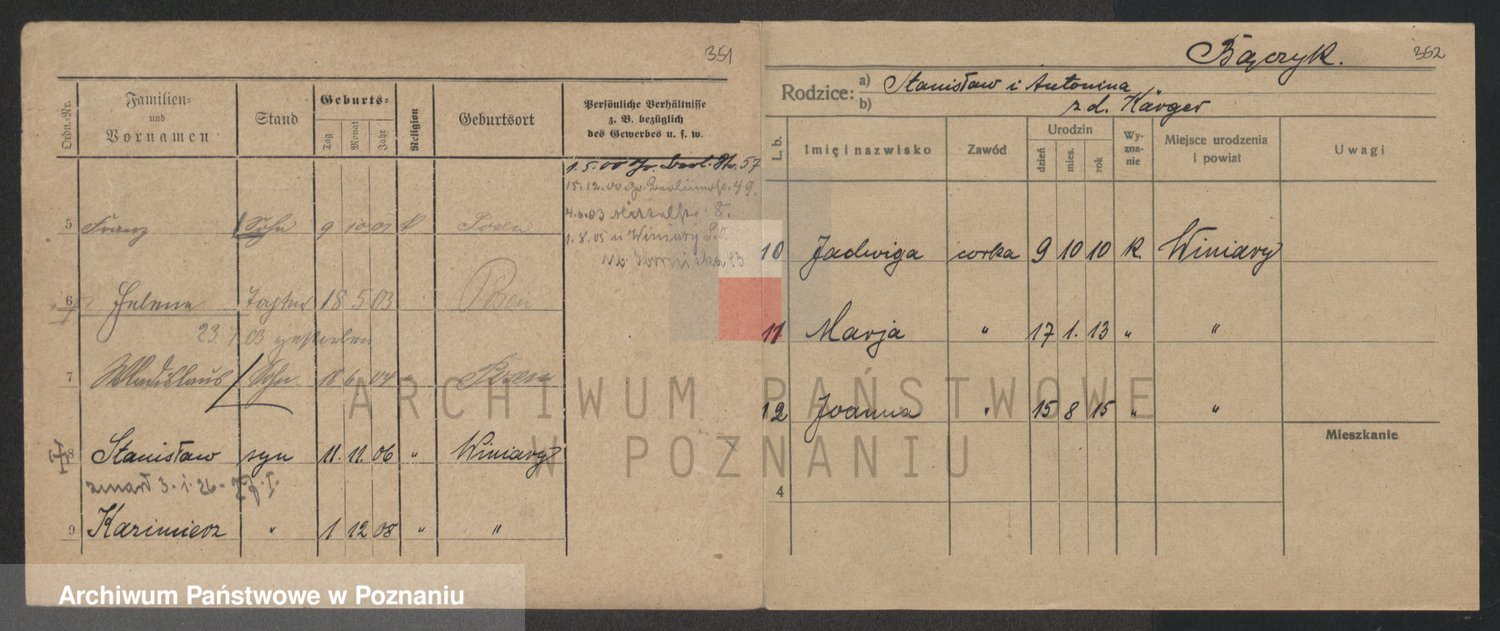 351
Ordn.-Nr.
Familien-
und
Vornamen
Stand
Geburts-
Tag
Monat
Jahr
Religion
Geburtsort
Persönliche Verhältnisse
z. B. bezüglich
des Gewerbes u. s. w.
1.5.00 57
15.12.00 49.
4.6.03 8.
1.8.05 Winiary
5 Franz Sohn 9 10 01 k Posen
6 Helene Tochter 18 5 03 Posen
23 03 gestorben
7 Wladislaus Sohn 18 6 04 " Posen
8 Stanisław syn 11. 11. 06 " Winiary
zmarł 3. 1. 26
9 Kazimierz " 1 12 08 " "
Bączyk.
352
Rodzice: a) Stanisław i Antonina
b) z d. Kärger
L. b.
Imię i nazwisko
Zawód
Urodzin
dzień
mies.
rok
Wy-
zna-
nie
Miejsce urodzenia
i powiat
Uwagi
10 Jadwiga corka 9 10 10 k. Winiary
11 Marja " 17 1. 13 " "
12 Joanna " 15 8 15 " "
Mieszkanie
4
ARCHIWUM PAŃSTWOWE
W POZNANIU
Archiwum Państwowe w Poznaniu